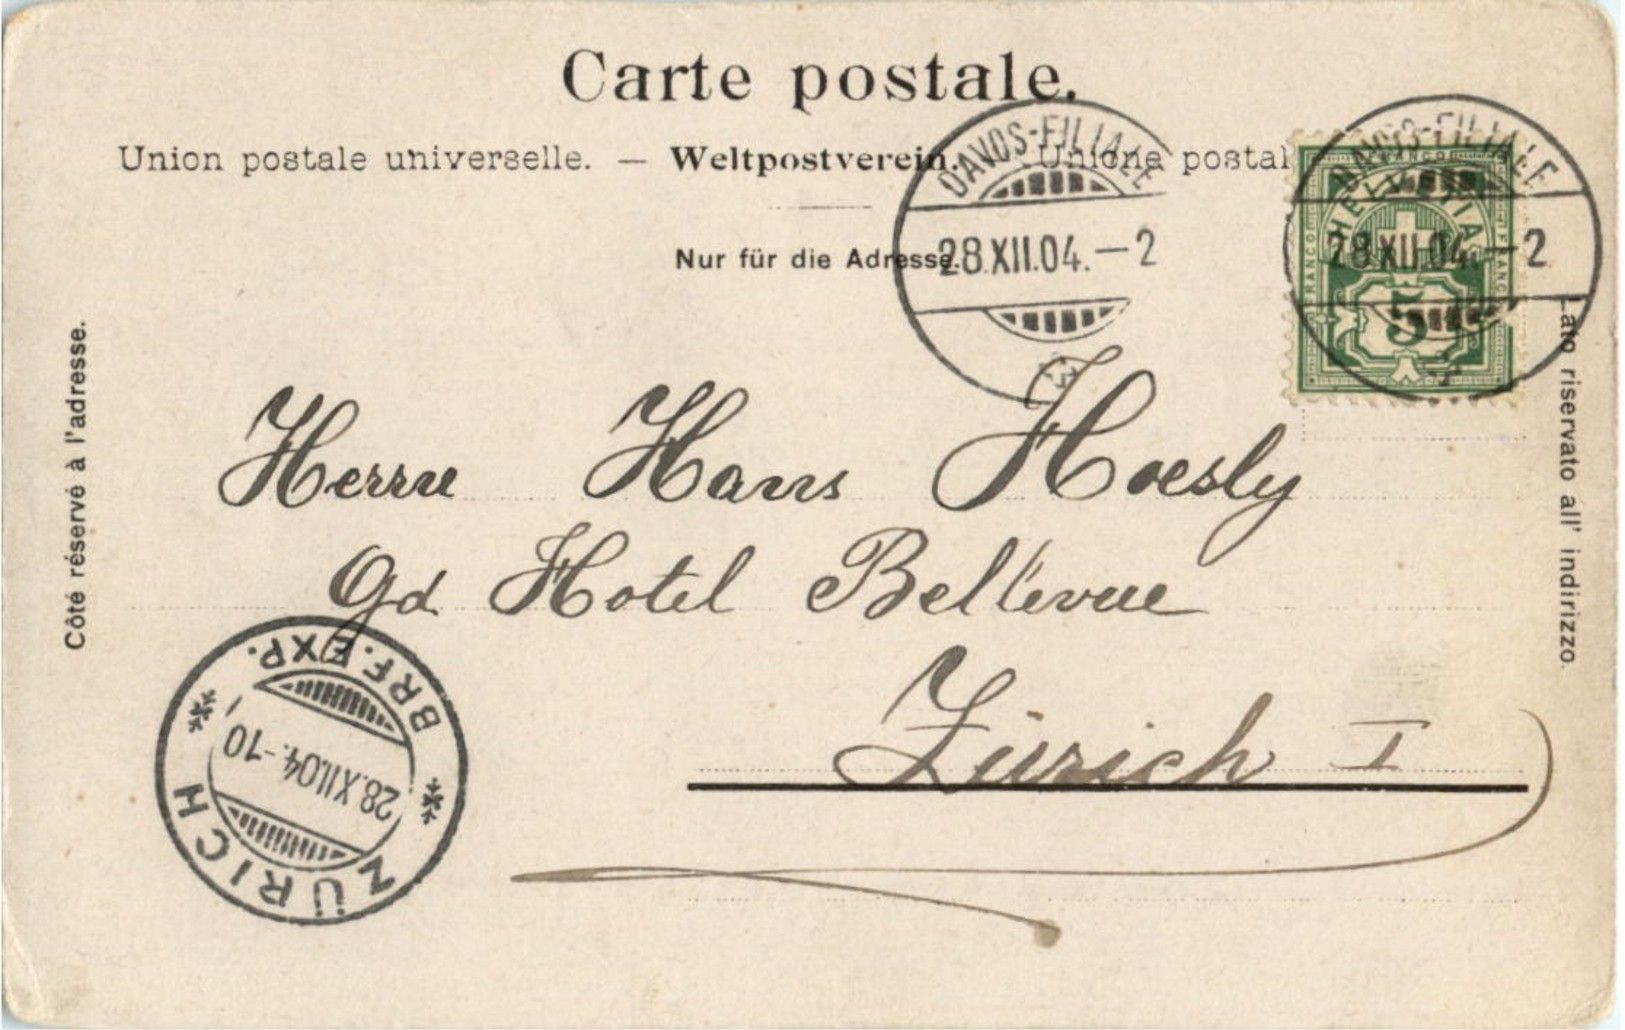 Carte postale.
Union postale universelle. — Weltpostverein. — Unione postal
Nur für die Adresse.
DAVOS-FILIALE
28.XII.04.—2
DAVOS-FILIALE
28.XII.04.—2
FRANCO
HELVETIA
FRANCO
FRANCO
5
Côté réservé à l'adresse.
Lato riservato all' indirizzo.
Herrn Hans Hoesly
Gd Hotel Bellevue
Zürich I
ZÜRICH
BRF. EXP.
28.XII.04.-10